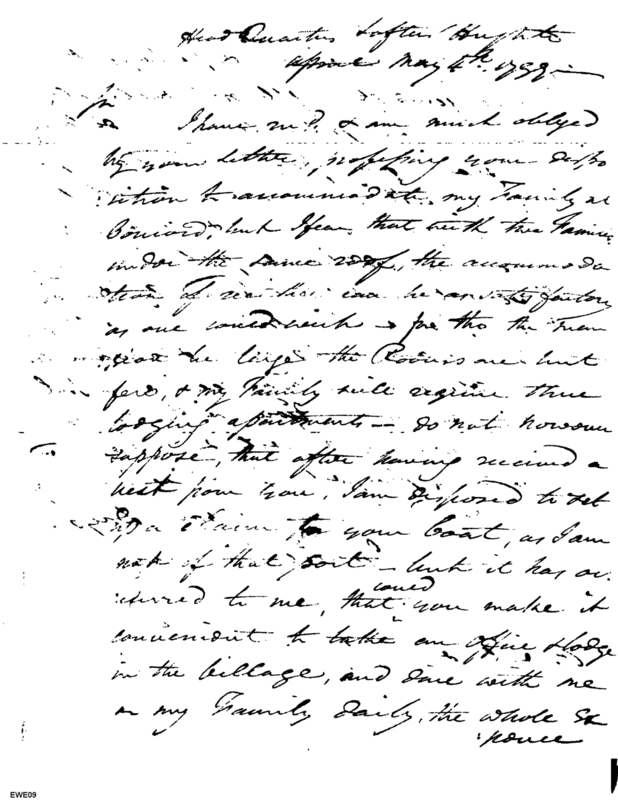 Head Quarters Loftus Heights
May 4th. 1799 —
Sir
I have recd. & am much obliged
by your Letter, professing your dispo
sition to accommodate my Family at
but I fear that with two Families
under the same roof, the accommoda
tion of neither can be as satisfactory
as one could wish — for tho the Man
sion be large the Rooms are but
few, & my Family will require three
lodging apartments — do not however
suppose, that after having received a
vest from you, I am disposed to set
up a claim to your Coat, as I am
not of that sort — but it has oc
curred to me, that could you make it
convenient to take an office & lodge
in the Village, and dine with me
or my Family daily, the whole Ex
pence
EWE09